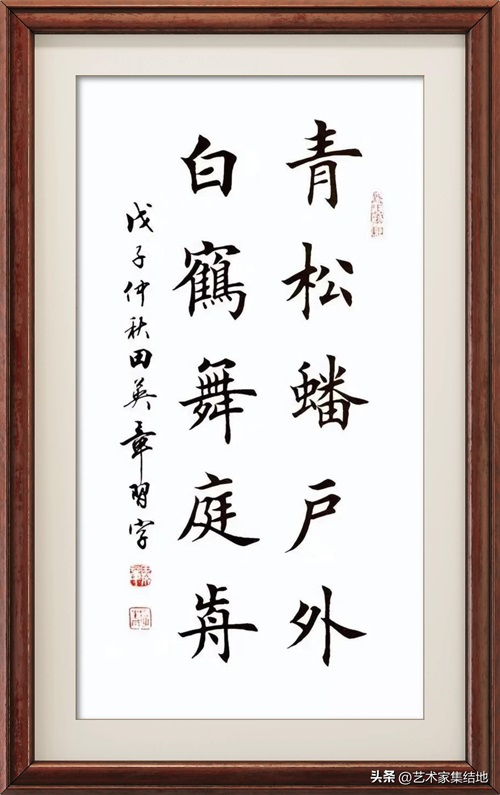 青松蟠戶外
白鶴舞庭歬
戊子仲秋田英章習字
头条 @艺术家集结地